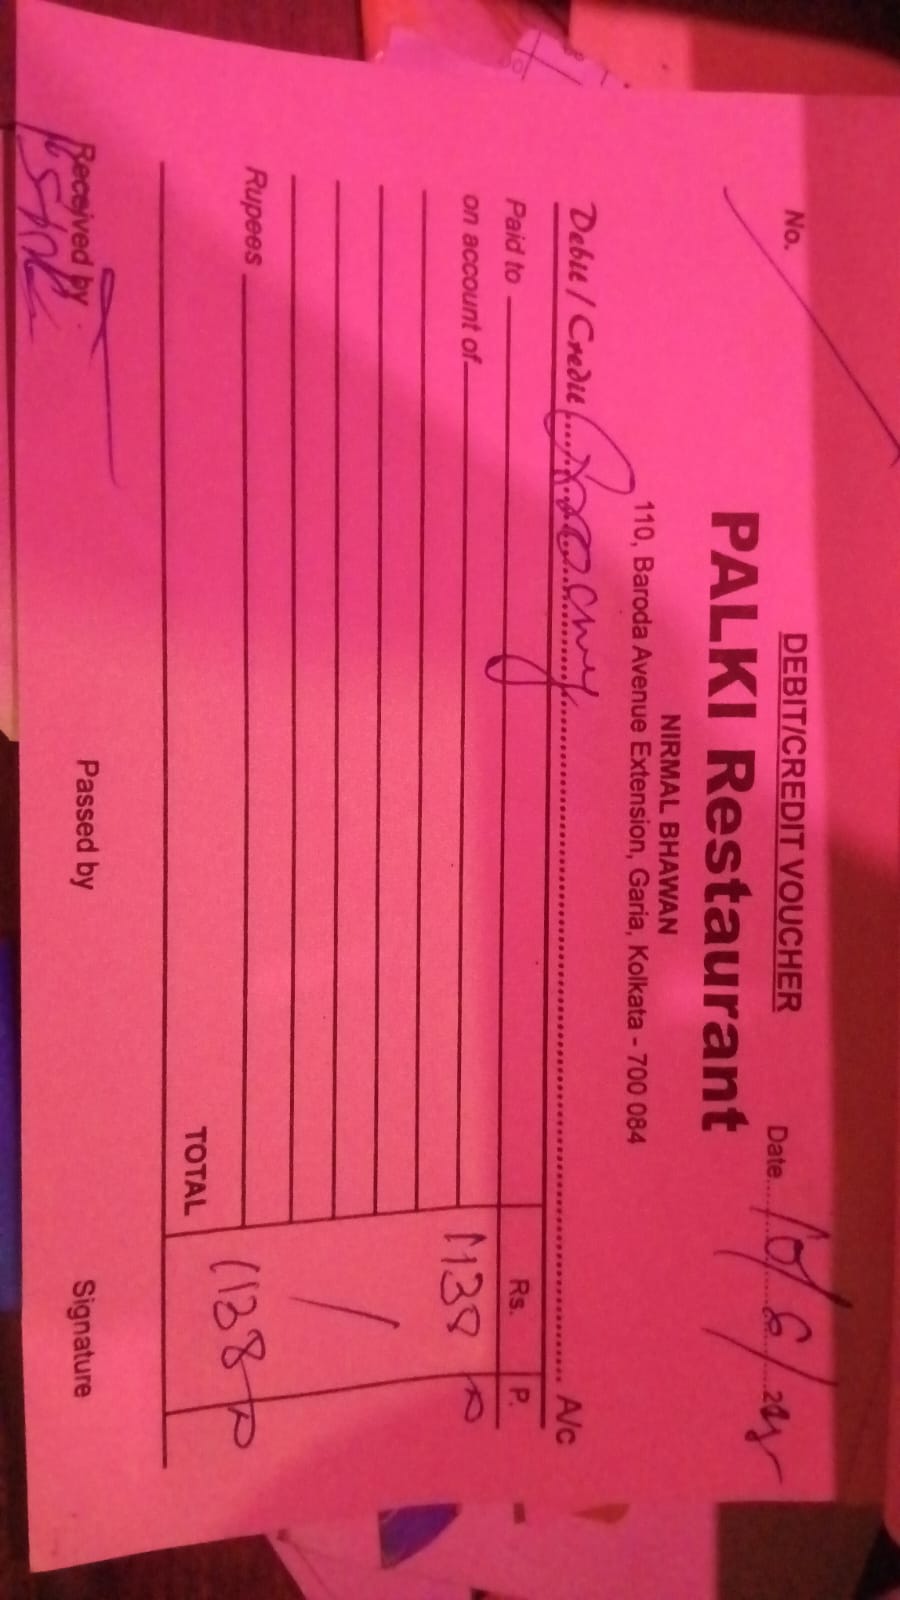 DEBIT/CREDIT VOUCHER
No. Date
PALKI Restaurant
NIRMAL BHAWAN
110, Baroda Avenue Extension, Garia, Kolkata - 700 084
Debit / Credit A/c
Paid to Rs. P.
on account of 1138
Rupees
TOTAL 1138
Received by Passed by Signature